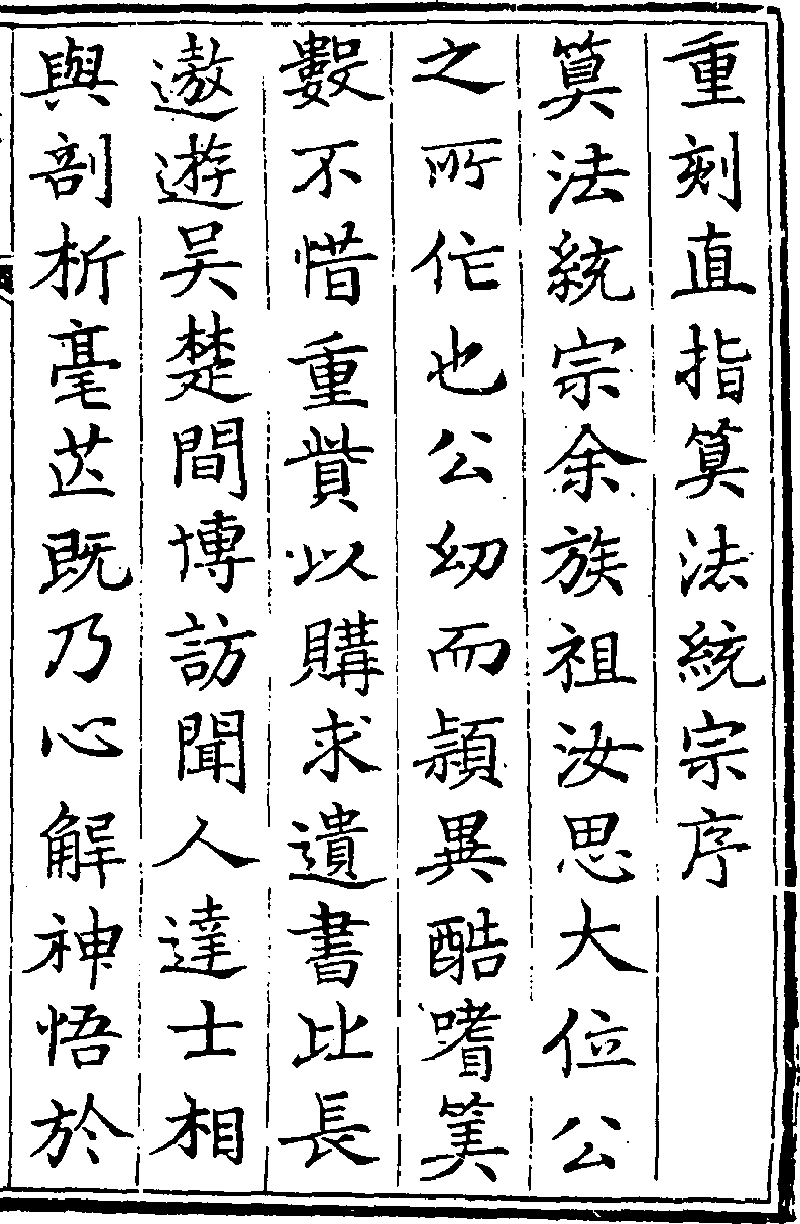 重刻直指筭法統宗序
筭法統宗余族祖汝思大位公
之所作也公幼而頴異酷嗜筭
數不惜重貲以購求遺書比長
遨遊吴楚間博訪聞人達士相
與剖析毫芒既乃心解神悟於